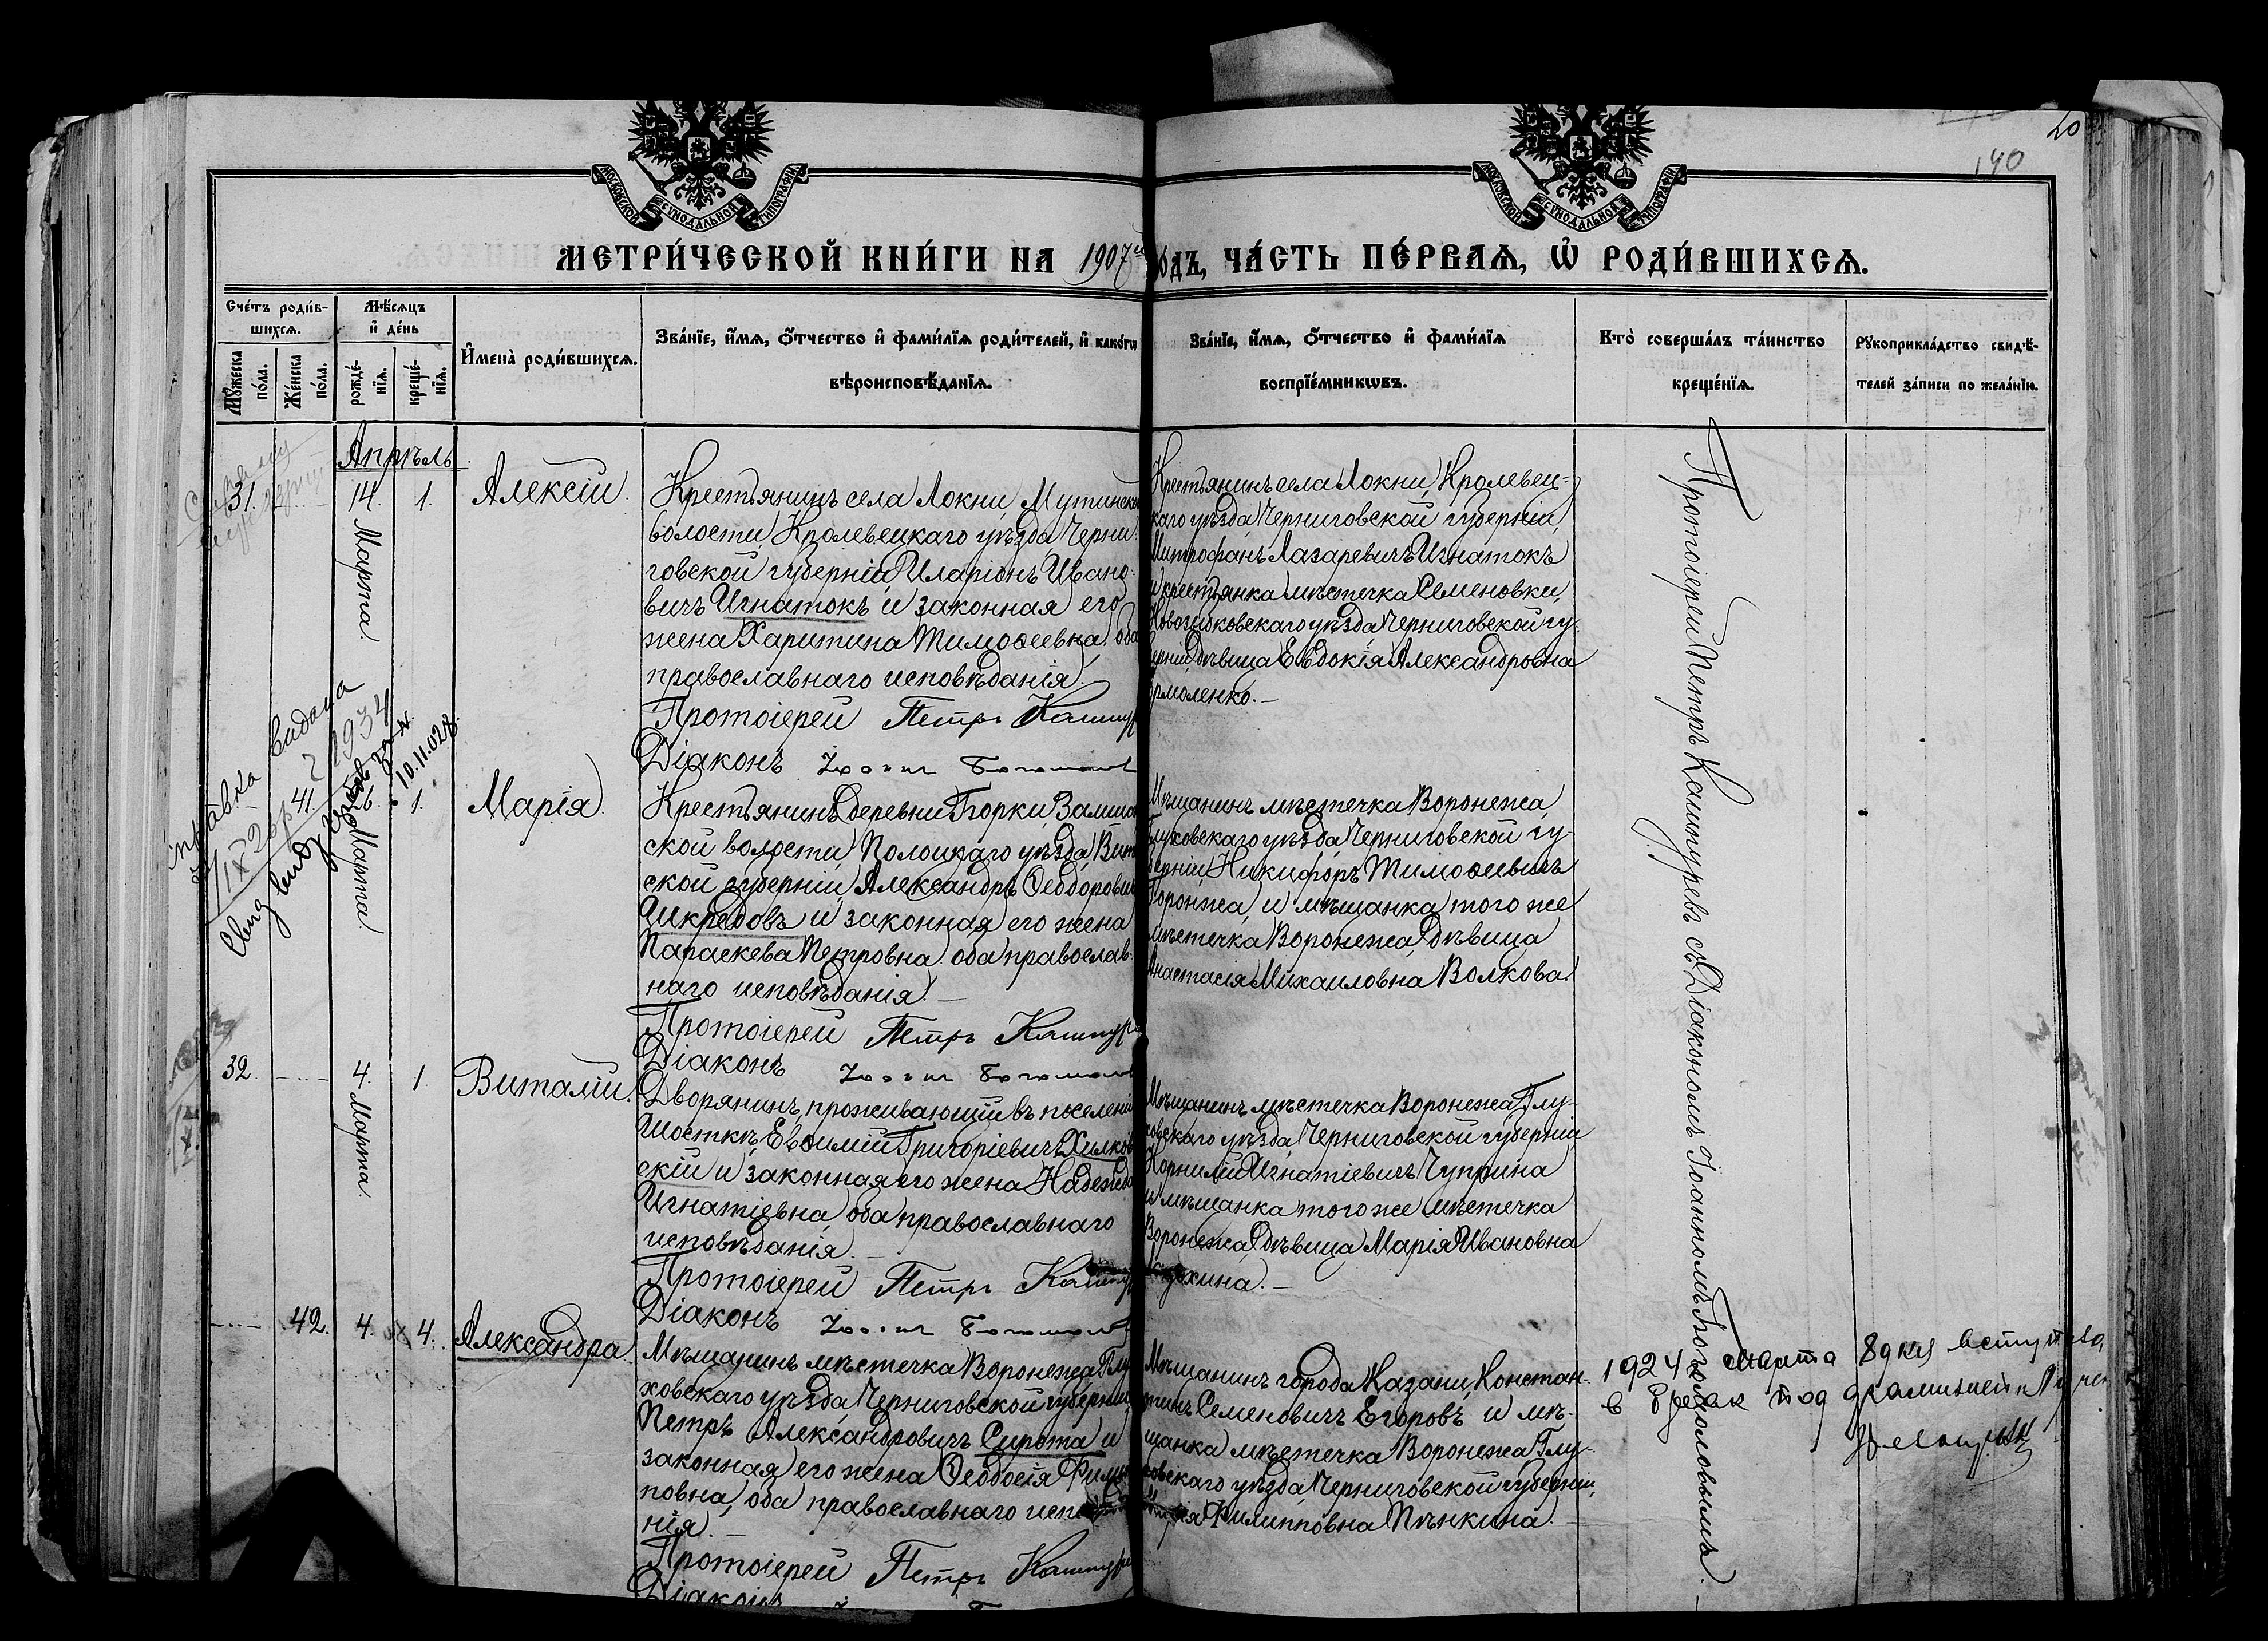 20
140
МОСКОВСКОЙ СѴНОДАЛЬНОЙ ТИПОГРАФІИ
МОСКОВСКОЙ СѴНОДАЛЬНОЙ ТИПОГРАФІИ
МЕТРИ́ЧЕСКОЙ КНИ́ГИ НА 1907 ОДЪ, ЧА́СТЬ ПЕ́РВАѦ, Ѡ҆ РОДИ́ВШИХСѦ.
Сче́тъ роди́в-
шихсѧ.
Мꙋ́жеска по́ла.
Же́нска по́ла.
Мѣ́сѧцъ
и҆ де́нь
рожде́-
нїѧ.
креще́-
нїѧ.
И҆мена̀ роди́вшихсѧ.
Зва́нїе, и҆́мѧ, ѻ҆́тчество и҆ фами́лїѧ роди́телей, и҆ како́гѡ
вѣроисповѣ́данїѧ.
Зва́нїе, и҆́мѧ, ѻ҆́тчество и҆ фами́лїѧ
воспрїе́мникѡвъ.
Кто̀ соверша́лъ та́инство
креще́нїѧ.
Рꙋкоприкла́дство свидѣ́-
телей за́писи по жела́нїю.
Апрѣль
31.
14.
Марта.
1.
Алексій.
Крестьянинъ села Локни, Мутинско
волости, Кролевецкаго уѣзда, Черни-
говской губерніи, Иларіонъ Ивано-
вичъ Игнатокъ и законная его
жена Харитина Тимоѳеевна, оба
православнаго исповѣданія.
Протоіерей Петръ Кашпур
Діаконъ
Крестьянинъ села Локни, Кролевец-
каго уѣзда, Черниговской губерніи,
Митрофанъ Лазаревичъ Игнатокъ
и крестьянка мѣстечка Семеновки,
Новозыбковскаго уѣзда, Черниговской гу-
берніи, дѣвица Евдокія Александровна
рмоленко.—
справка видана
1934
10.11.02
41.
Марта.
1.
Марія.
Крестьянинъ деревни Горки,
ской волости, Полоцкаго уѣзда, Вит
ской губерніи, Александръ Ѳеодорович
и законная его жена
Параскева Петровна, оба православ-
наго исповѣданія.—
Протоіерей Петръ Кашпур
Діаконъ
Мѣщанинъ мѣстечка Воронежа,
Глуховскаго уѣзда, Черниговской гу-
берніи, Никифоръ Тимоѳеевичъ
Воронжа, и мѣщанка того же
мѣстечка Воронежа, дѣвица
Анастасія Михаиловна Волкова.
32.
4.
Марта.
1.
Виталій.
Дворянинъ, проживающій въ поселеніи
Шосткѣ, Евѳимій Григоріевичъ Хилков
скій и законная его жена Надежда
Игнатіевна, оба православнаго
исповѣданія.—
Протоіерей Петръ Кашпур
Діаконъ
Мѣщанинъ мѣстечка Воронежа, Глу-
ховскаго уѣзда, Черниговской губерніи,
Корнилій Игнатіевичъ Чуприна
и мѣщанка того же мѣстечка
Воронежа, дѣвица Марія Ивановна
42.
4.
4.
Александра.
Мѣщанинъ мѣстечка Воронежа, Глу
ховскаго уѣзда, Черниговской губерніи,
Петръ Александровичъ Сирота и
законная его жена Ѳеодосія Филип
повна, оба православнаго испо
нія.—
Протоіерей Петръ Кашпур
Діаконъ
Мѣщанинъ города Казани, Констан-
тинъ Семеновичъ Егоровъ и мѣ-
щанка мѣстечка Воронежа, Глу-
ховскаго уѣзда, Черниговской губерніи,
Филипповна Пѣнкина.—
Протоіерей Петръ Кашпуревъ съ Діакономъ Іоанномъ Богомоловымъ.
1924 марта 8 дня вступила
в брак под фамилией